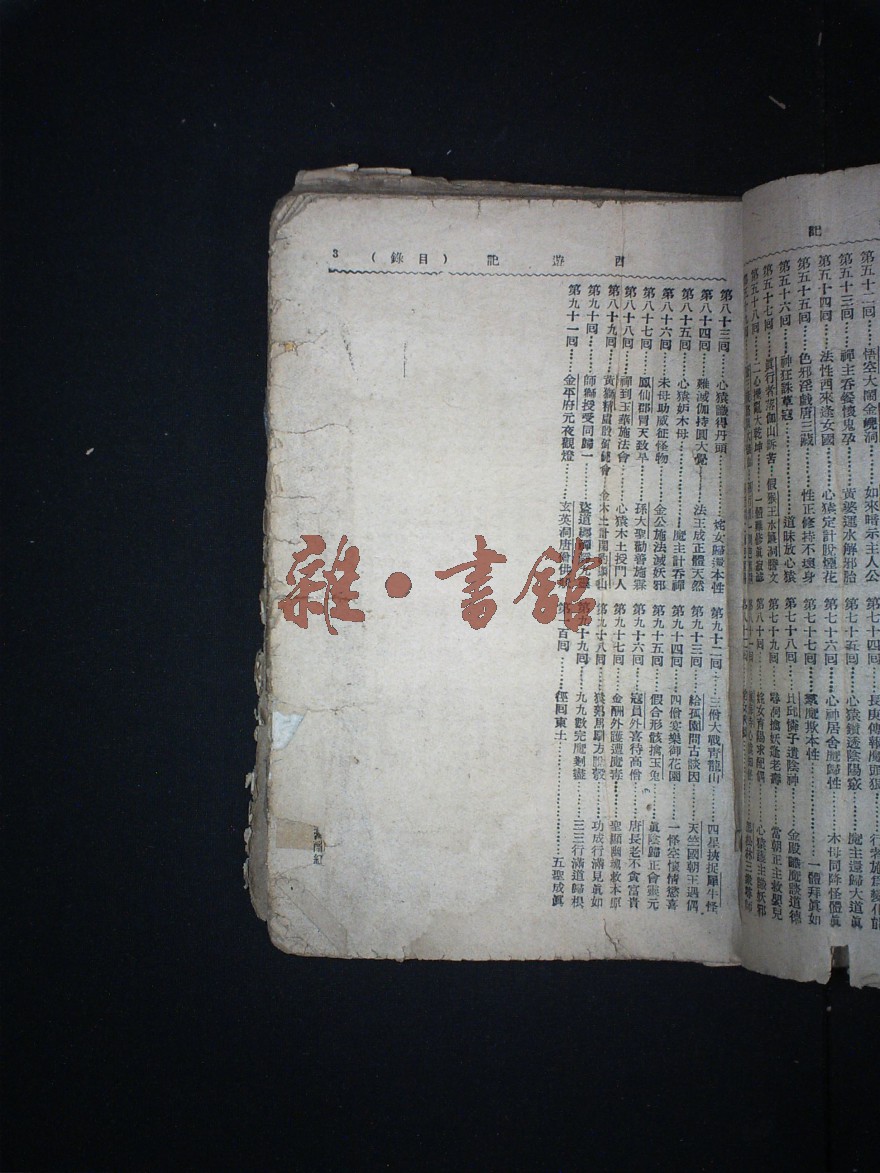 記
第五十二回 悟空大鬧金㠋洞 如來暗示主人公
第五十三回 禪主吞餐懷鬼孕 黃婆運水解邪胎
第五十四回 法性西來逢女國 心猿定計脫煙花
第五十五回 色邪淫戲唐三藏 性正修持不壞身
第五十六回 神狂誅草寇 道昧放心猿
第五十七回 眞行者落伽山訴苦 假猴王水簾洞謄文
第五十八回 二心攪亂大乾坤 一體難修眞寂滅
第七十四回 長庚傳報魔頭狠 行者施為變化能
第七十五回 心猿鑽透陰陽竅 魔主還歸大道眞
第七十六回 心神居舍魔歸性 木母同降怪體眞
第七十七回 羣魔欺本性 一體拜眞如
第七十八回 比邱憐子遣陰神 金殿識魔談道德
第七十九回 尋洞擒妖逢老壽 當朝正主救嬰兒
第八十回 姹女育陽求配偶 心猿護主識妖邪
西遊記（目錄） 3
第八十三回 心猿識得丹頭 姹女歸還本性
第八十四回 難滅伽持圓大覺 法王成正體天然
第八十五回 心猿妒木母 魔主計吞禪
第八十六回 木母助威征怪物 金公施法滅妖邪
第八十七回 鳳仙郡冒天致旱 孫大聖勸善施霖
第八十八回 禪到玉華施法會 心猿木土授門人
第八十九回 黃獅精虛設釘鈀會 金木土計鬧豹頭山
第九十回 師獅授受同歸一 盜道纏禪靜九靈
第九十一回 金平府元夜觀燈 玄英洞唐僧供狀
第九十二回 三僧大戰靑龍山 四星挾捉犀牛怪
第九十三回 給孤園問古談因 天竺國朝王遇偶
第九十四回 四僧宴樂御花園 一怪空懷情慾喜
第九十五回 假合形骸擒玉兔 眞陰歸正會靈元
第九十六回 寇員外喜待高僧 唐長老不貪富貴
第九十七回 金酬外護遭魔毒 聖顯幽魂救本原
第九十八回 猿熟馬馴方脫殼 功成行滿見眞如
第九十九回 九九數完魔剗盡 三三行滿道歸根
第一百回 徑回東土 五聖成眞
雜·書館